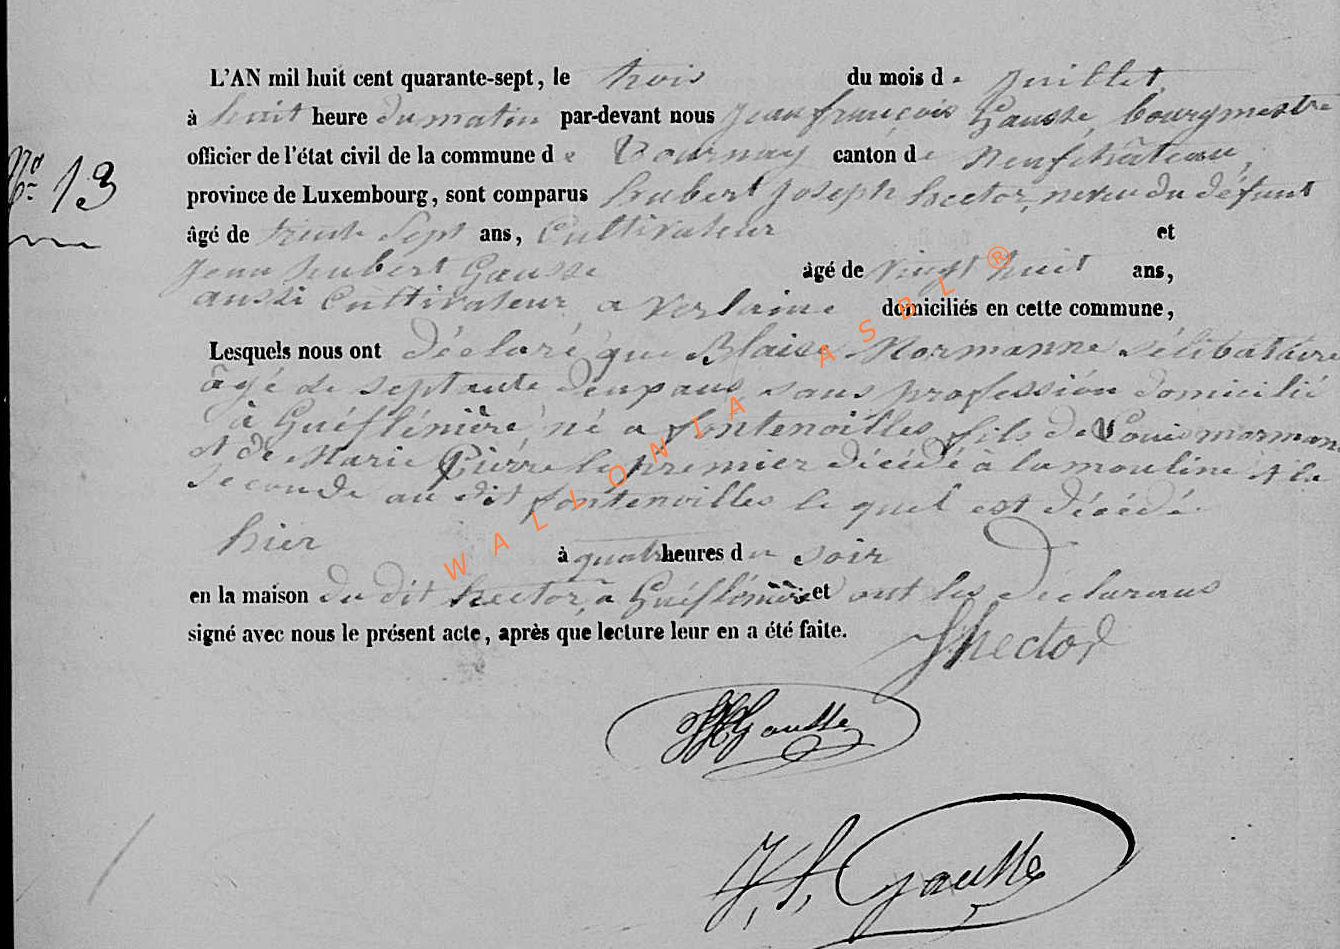 L'AN mil huit cent quarante-sept, le trois du mois de juillet
à huit heure du matin par-devant nous jean françois Gausse, bourgmestre
officier de l'état civil de la commune de Tournay canton de neufchâteau,
N° 13
province de Luxembourg, sont comparus hubert joseph hector, neveu du défunt
âgé de trente sept ans, Cultivateur et
Jean hubert Gausse âgé de vingt huit ans,
aussi Cultivateur a verlaine domiciliés en cette commune,
Lesquels nous ont déclaré que Blaise Normanne sélibataire
âgé de septante deux ans sans profession domicilié
à né a fontenoilles fils de Louis
et de Marie Pierre le premier décédé à la mouline & la
seconde au dit fontenoilles le quel est décédé
hier à quatre heures du soir
en la maison du dit hector, a et ont les déclarans
signé avec nous le présent acte, après que lecture leur en a été faite.
hector
JHGausse
J, f, Gausse
WALLONIA ASBL ®